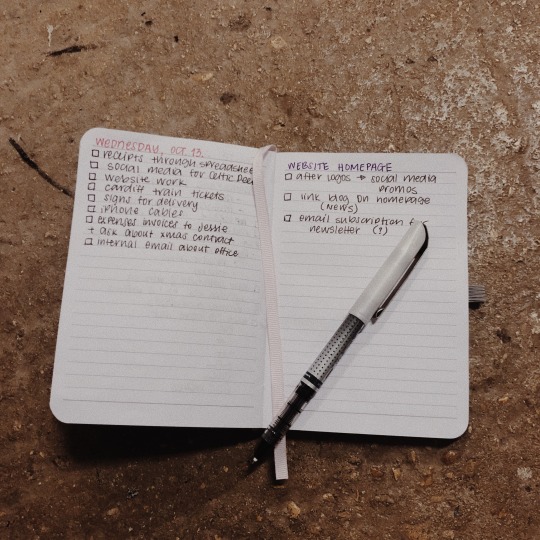 WEDNESDAY, OCT. 13.
receipts through spreadsheet
social media for Celtic Deer
website work
cardiff train tickets
signs for delivery
iphone cables
expenses invoices to Jessie
+ ask about xmas contract
internal email about office
WEBSITE HOMEPAGE
after logos → social media
promos
link blog on homepage
(NEWS)
email subscription for
newsletter (?)